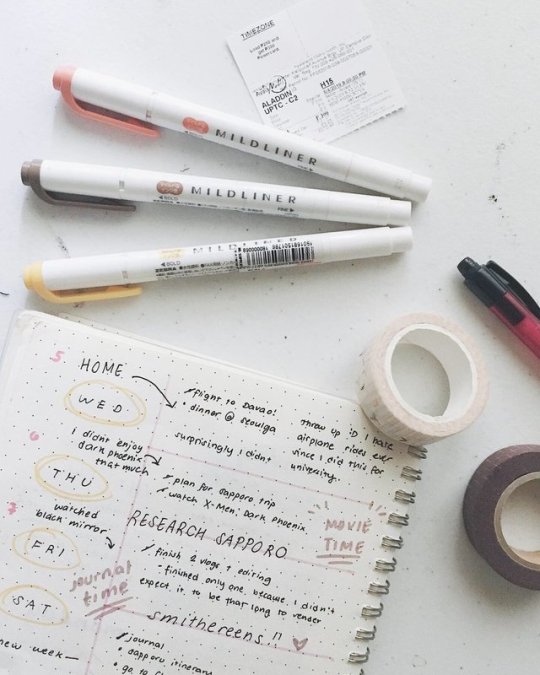 TIMEZONE
ALADDIN
UPTC . C2
H15
MILDLINER
MILDLINER
BOLD
FINE
MILDLINER
BOLD
ZEBRA
5
HOME
WED
flight to Davao!
dinner @ seoulga
surprisingly I didn't
throw up :D I hate
airplane rides ever
since I did this for
university.
6
I didn't enjoy
dark phoenix
that much
THU
plan for sapporo trip
watch X-Men: Dark phoenix
MOVIE
TIME
7
watched
black mirror
FRI
RESEARCH SAPPORO
finish 2 vlogs + editing
finished only one because I didn't
expect it to be that long to render
journal
time
smithereens !!
SAT
new week
journal
sapporo itinerary
go to